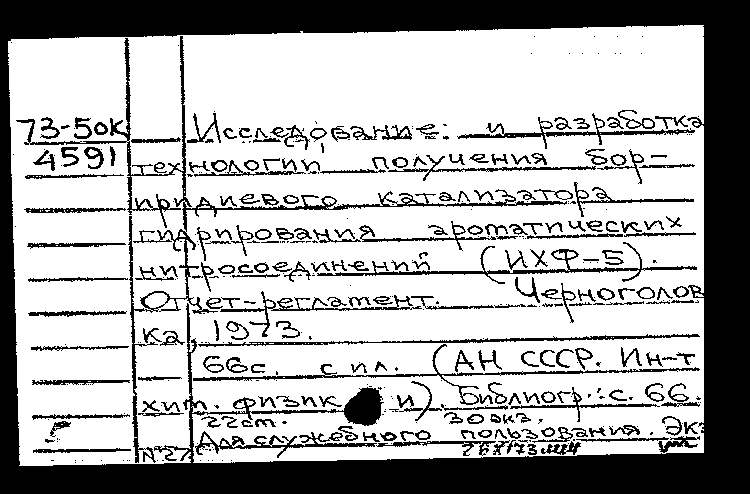 73-5ок Исследование: и разработка
4591 технологии получения бор-
иридиевого катализатора
гидрирования ароматических
нитросоединений (ИХФ-5).
Отчет-регламент. Черноголов
ка, 1973.
66с. с ил. (АН СССР. Ин-т
хим. физик и). Библиогр.: с. 66.
22ст. 30экз.
Для служебного пользования. Экз
N 27